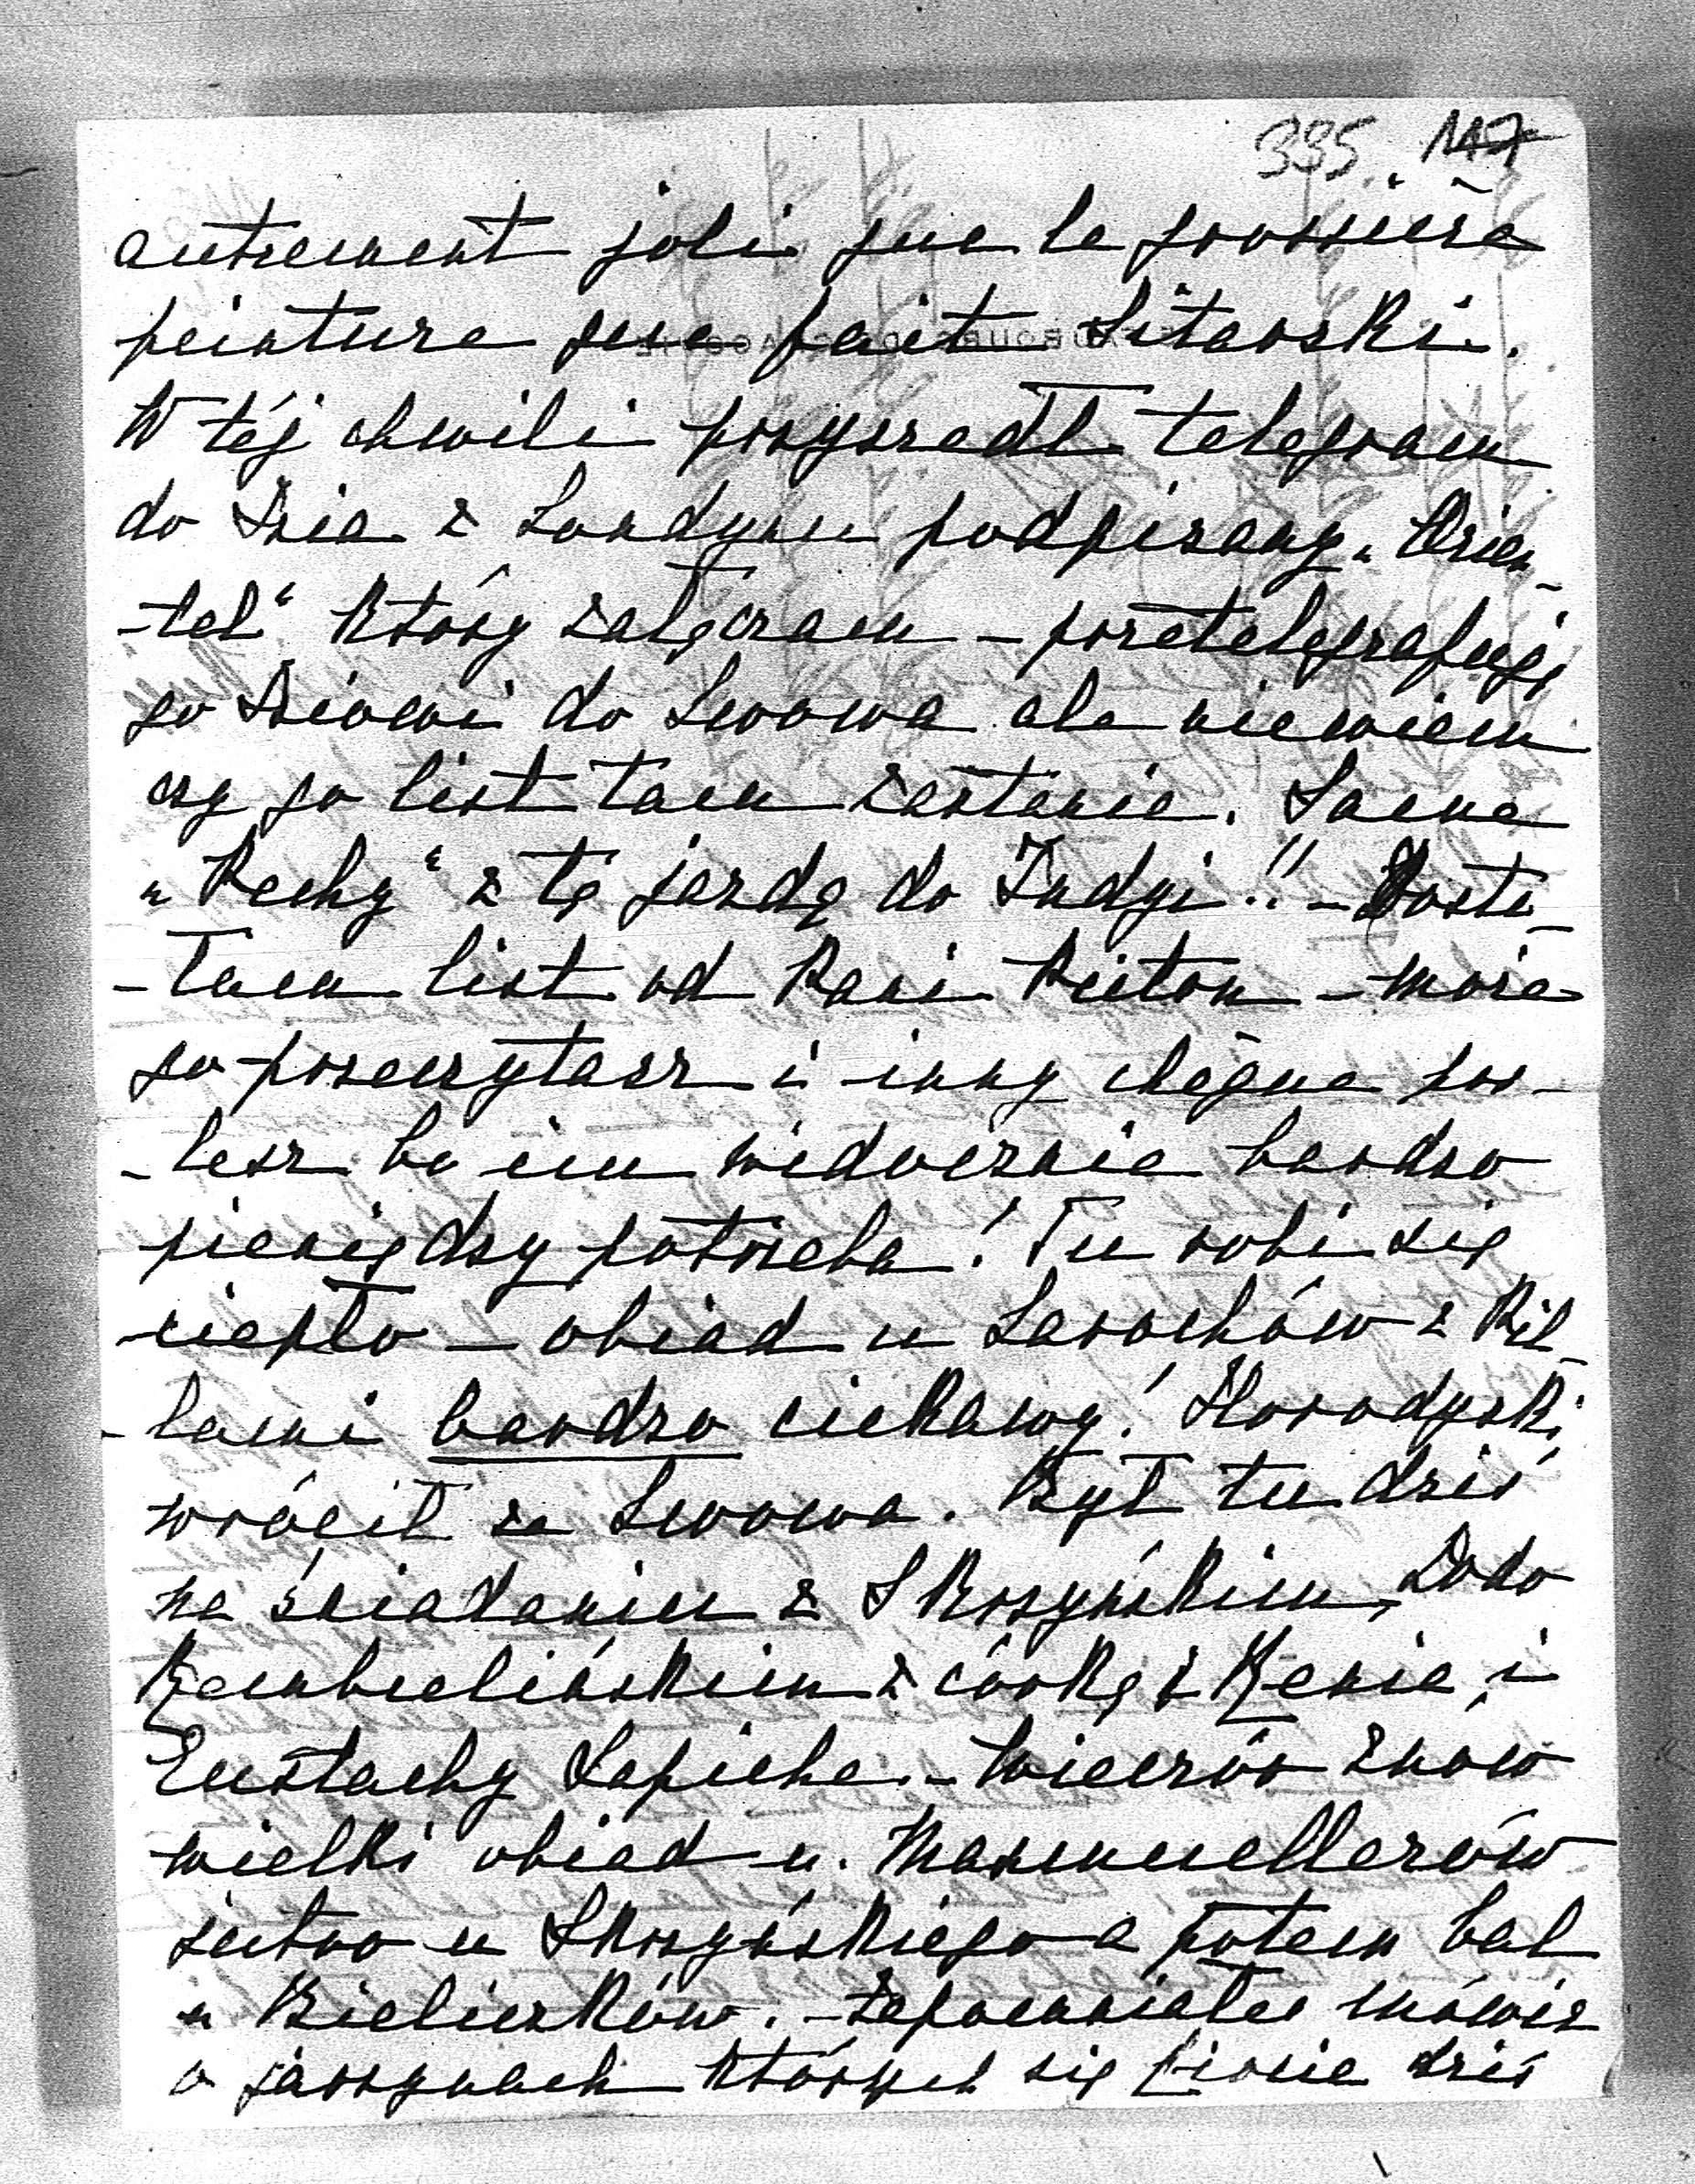 335. 117
autrement joli que le grossière
peinture que fait Sitarski.
W téj chwili przyszedł telegram
do Izia z Londynu podpisany „Orien-
-tal" który załączam – przetelegrafuję
go Iziowi do Lwowa ale niewiem
czy go list tam zastanie. Sama
„Pechy" z tę jazdę do Indyi!! – Dosta-
-łam list od Pani – może
go przeczytasz i inny chèque poś-
-lesz bo im widocznie bardzo
pieniędzy potrzeba! Tu robi się
ciepło – obiad u Larochów z Bil-
-lami bardzo ciekawy! Horodyski
wrócił ze Lwowa. Był tu dziś
na śniadaniu z Skrzyńskim, Dodo
Rembielińskim z córkę z Kenia i
Eustachy Sapieha. – Wieczór znów
wielki obiad u. Maxmuellerów
jutro u Skrzyńskiego a potem bal
u Bieliczków. – Zapomniałeś mówić
o jarzynach których się dziś